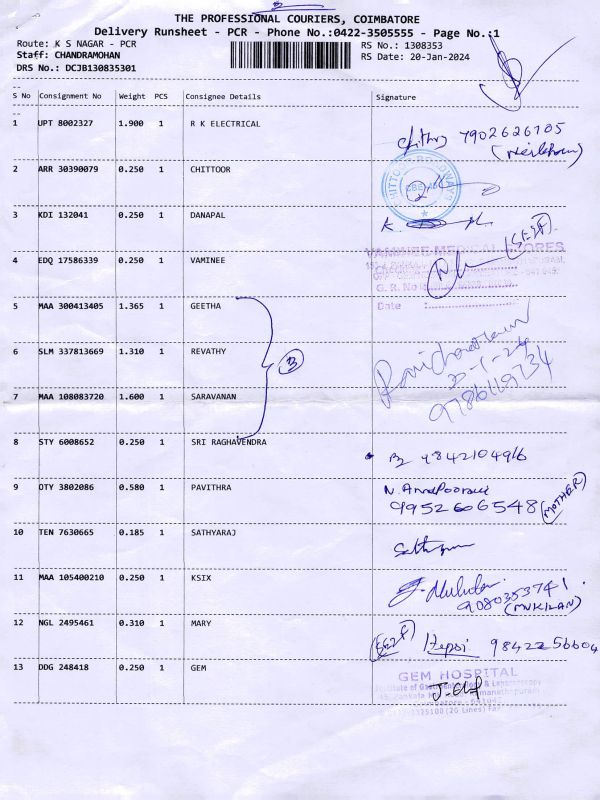 THE PROFESSIONAL COURIERS, COIMBATORE
Delivery Runsheet - PCR - Phone No.:0422-3505555 - Page No.:1
Route: K S NAGAR - PCR
RS No.: 1308353
Staff: CHANDRAMOHAN
RS Date: 20-Jan-2024
DRS No.: DCJB130835301
S No Consignment No Weight PCS Consignee Details Signature
1 UPT 8002327 1.900 1 R K ELECTRICAL
7902626705
2 ARR 30390079 0.250 1 CHITTOOR
3 KDI 132041 0.250 1 DANAPAL
4 EDQ 17586339 0.250 1 VAMINEE
MEDICAL STORES
G. R. No
Date :
5 MAA 300413405 1.365 1 GEETHA
6 SLM 337813669 1.310 1 REVATHY
3
7 MAA 108083720 1.600 1 SARAVANAN
9786119734
8 STY 6008652 0.250 1 SRI RAGHAVENDRA
9842104916
9 OTY 3802086 0.580 1 PAVITHRA
9952606548 (MOTHER)
10 TEN 7630665 0.185 1 SATHYARAJ
11 MAA 105400210 0.250 1 KSIX
9080353741
(MUKILAN)
12 NGL 2495461 0.310 1 MARY
9842256604
13 DDG 248418 0.250 1 GEM
GEM HOSPITAL